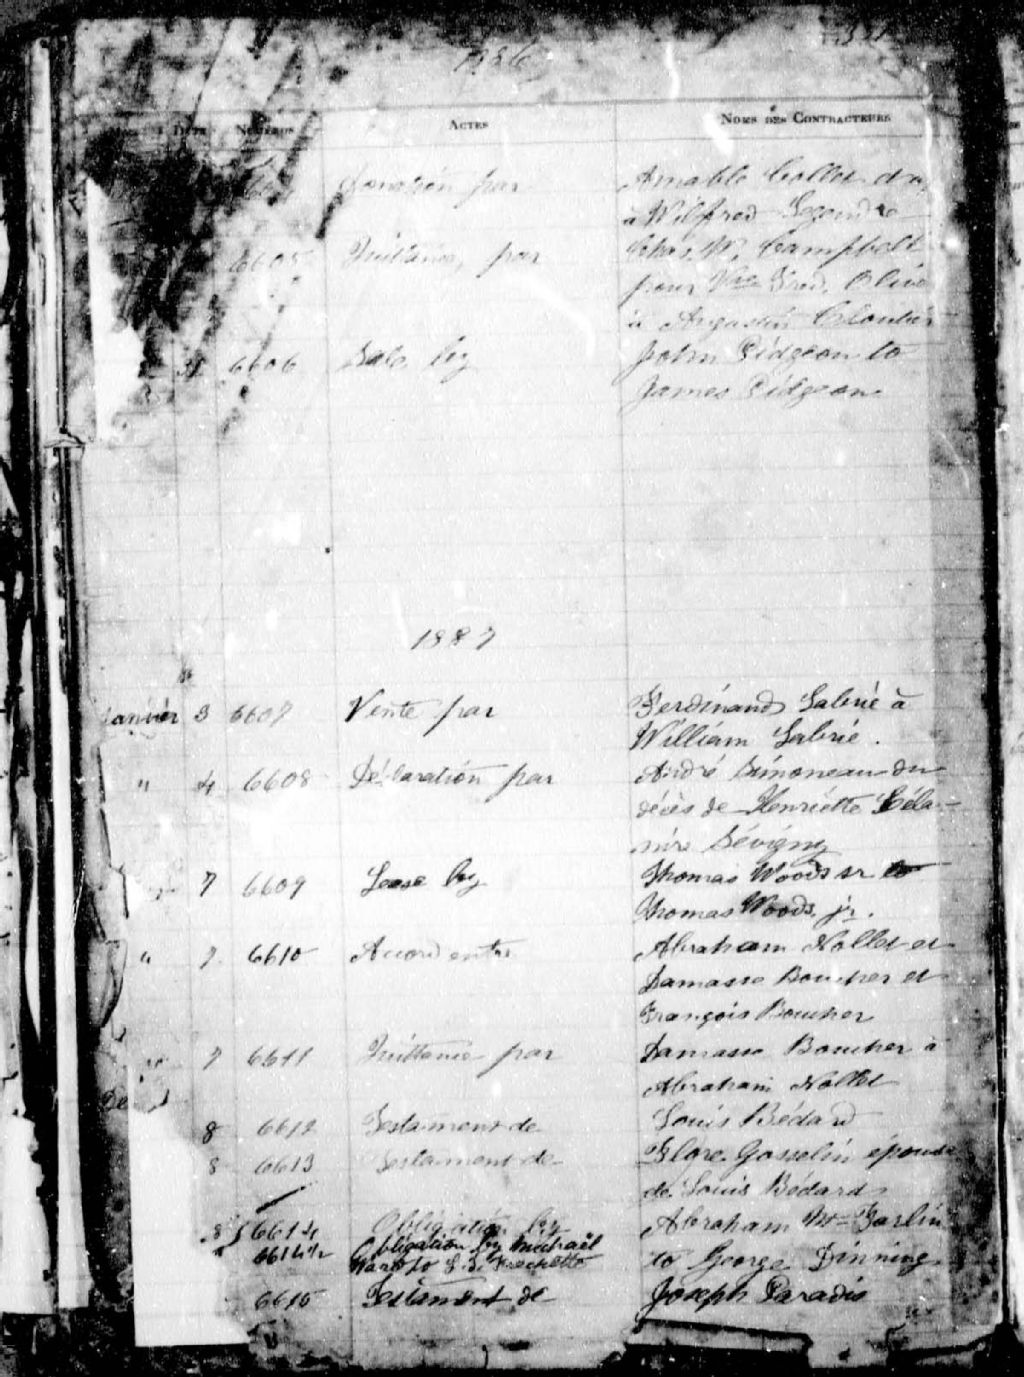 1886
Date Numéros Actes Noms des Contracteurs
Donation par Amable Collet
à Wilfred Legendre
6605 Quittance, par Chas. W. Campbell
pour Vve Fred. Olive
à Augustin Cloutier
6606 Sale by John Pidgeon to
James Pidgeon
1887
Janvier 3 6607 Vente par Ferdinand Labrie à
William Labrie.
" 4 6608 Déclaration par André Simoneau du
décès de Henriette Céla-
nire Sévigny
7 6609 Lease by Thomas Woods sr to
Thomas Woods jr.
" 7. 6610 Accord entre Abraham Nollet et
Damasse Boucher et
François Boucher
7 6611 Quittance par Damasse Boucher à
Abraham Nollet
8 6612 Testament de Louis Bédard
8 6613 Testament de Flore Gosselin épouse
de Louis Bédard
8 6614 Obligation by Abraham
6614½ Obligation by Michaël to George Dinning
Ward to L. B. Frechette
6615 Testament de Joseph Paradis